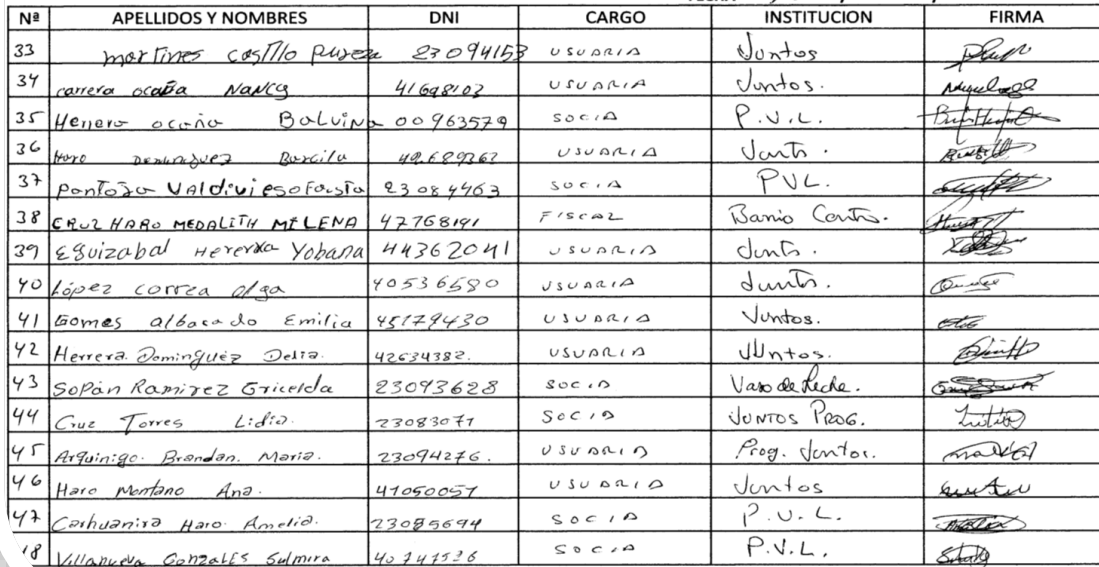 Nº APELLIDOS Y NOMBRES DNI CARGO INSTITUCION FIRMA
33 martines castillo pureza 23094153 USUARIA Juntos
34 carrera ocaña NANCY 41698103 USUARIA Juntos.
35 Herrera ocaño Balvina 00963579 SOCIA P.V.L.
36 Haro Dominguez Barcila USUARIA Junts.
37 pantoja VAldivieso Fausta 23084463 SOCIA PVL.
38 CRUZ HARO MEDALITH MILENA 47768191 FISCAL Barrio Centro.
39 Eguizabal Hererra Yobana 44362041 USUARIA Junts.
40 López correa olga 40536580 USUARIA Junts.
41 Gomes albarado Emilia 45179430 USUARIA Juntos.
42 Herrera Dominguez Delia. 42634382. USUARIA JUntos.
43 Sopán Ramirez Gricelda 23093628 SOCIA Vaso de Leche.
44 Cruz Torres Lidia. 23083071 SOCIA JUNTOS PROG.
45 Arquinigo. Brandan. Maria. 23094276. USUARIA Prog. Juntos.
46 Haro Montano Ana. 41050057 USUARIA Juntos
47 Carhuanira Haro Amelia. 23085694 SOCIA P.V.L.
48 Villanueva Gonzales Sulmira 40747536 SOCIA P.V.L.